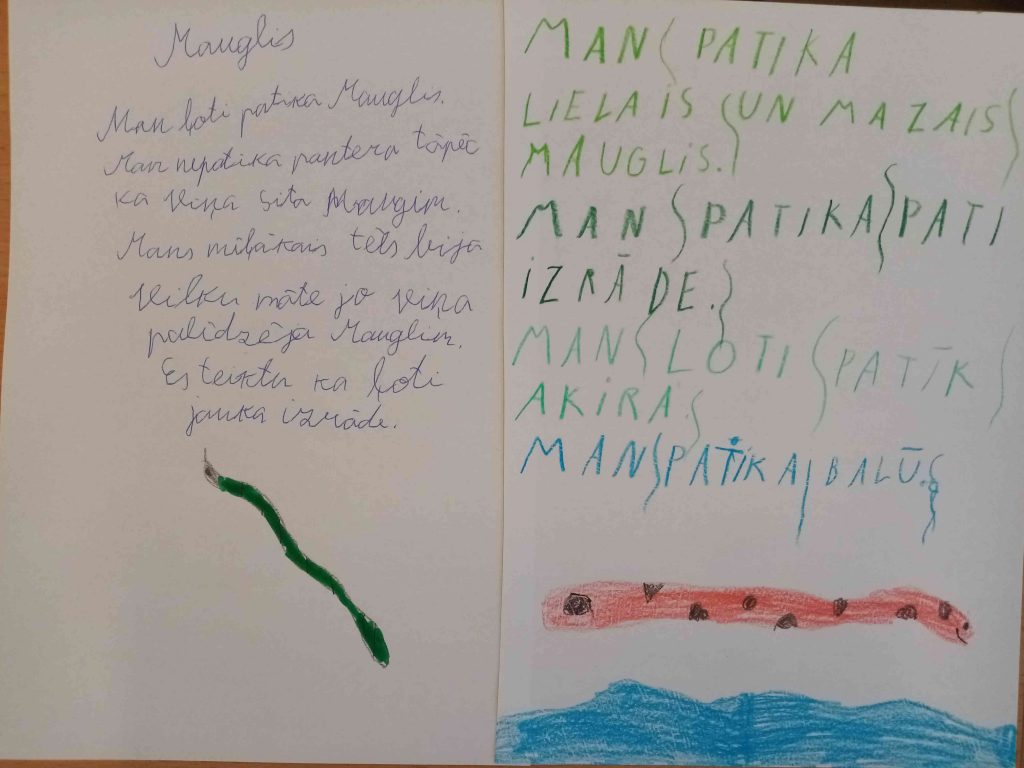 Mauglis
Man ļoti patika Mauglis.
Man nepatika pantera tāpēc
ka viņa sita Maugim.
Mans mīļākais tēls bija
vilku māte jo viņa
palīdzēja Mauglim.
Es teiktu ka ļoti
jauka izrāde.
MAN PATIKA
LIELAIS UN MAZAIS
MAUGLIS.
MAN PATIKA PATI
IZRĀDE.
MAN ĻOTI PATĪK
AKIRA.
MAN PATIKA BALŪ.